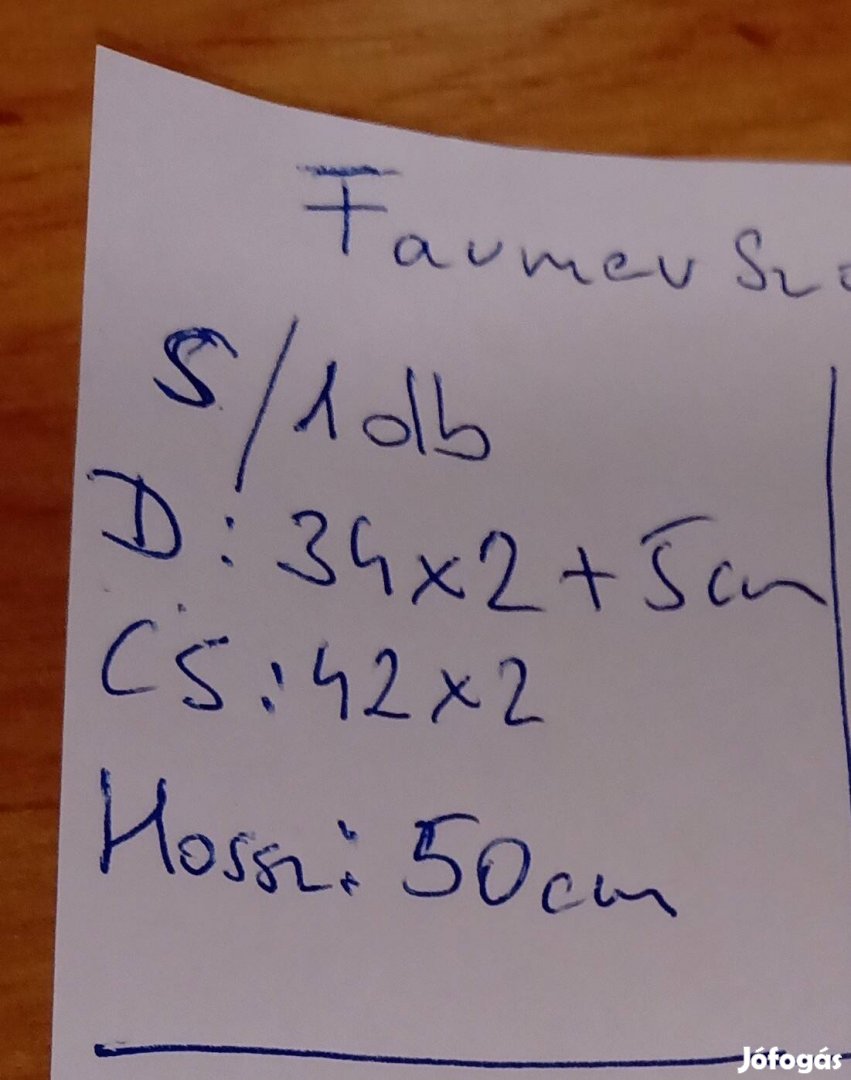 Farmer Sz
S/1 db
D: 34x2 + 5cm
CS: 42x2
Hossz: 50cm
Jófogás